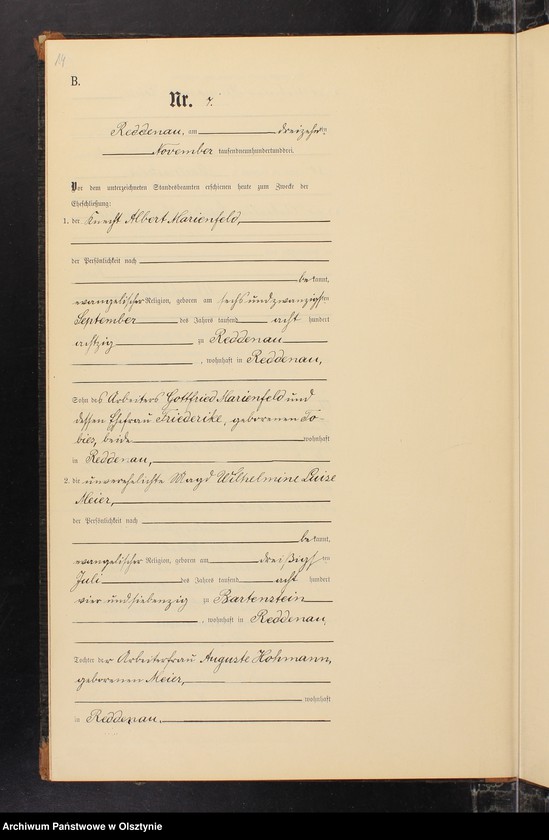 14
B.
Nr. 7.
Reddenau, am dreizehnten
November tausendneunhundertunddrei.
Vor dem unterzeichneten Standesbeamten erschienen heute zum Zwecke der
Eheschließung:
1. der Knecht Albert Marienfeld,
der Persönlichkeit nach
bekannt,
evangelischer Religion, geboren am sechsundzwanzigsten
September des Jahres tausend acht hundert
achtzig zu Reddenau
, wohnhaft in Reddenau,
Sohn des Arbeiters Gottfried Marienfeld und
dessen Ehefrau Friederike, geborenen To-
bies, beide wohnhaft
in Reddenau,
2. die unverehelichte Magd Wilhelmine Luise
Meier,
der Persönlichkeit nach
bekannt,
evangelischer Religion, geboren am dreißigsten
Juli des Jahres tausend acht hundert
vierundsiebenzig zu Bartenstein
, wohnhaft in Reddenau,
Tochter der Arbeiterfrau Auguste Hohmann,
geborenen Meier,
wohnhaft
in Reddenau,
Archiwum Państwowe w Olsztynie